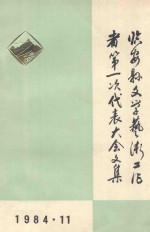 临安县文学艺术工作
者第一次代表大会文集
1984·11